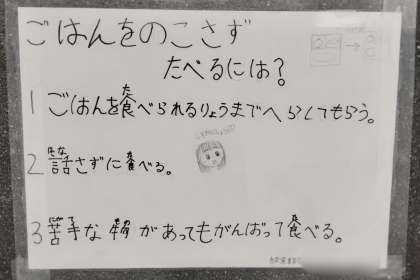 ごはんをのこさず
たべるには？
1 ごはんを食べられるりょうまでへらしてもらう。
2 話さずに食べる。
3 苦手な物があってもがんばって食べる。